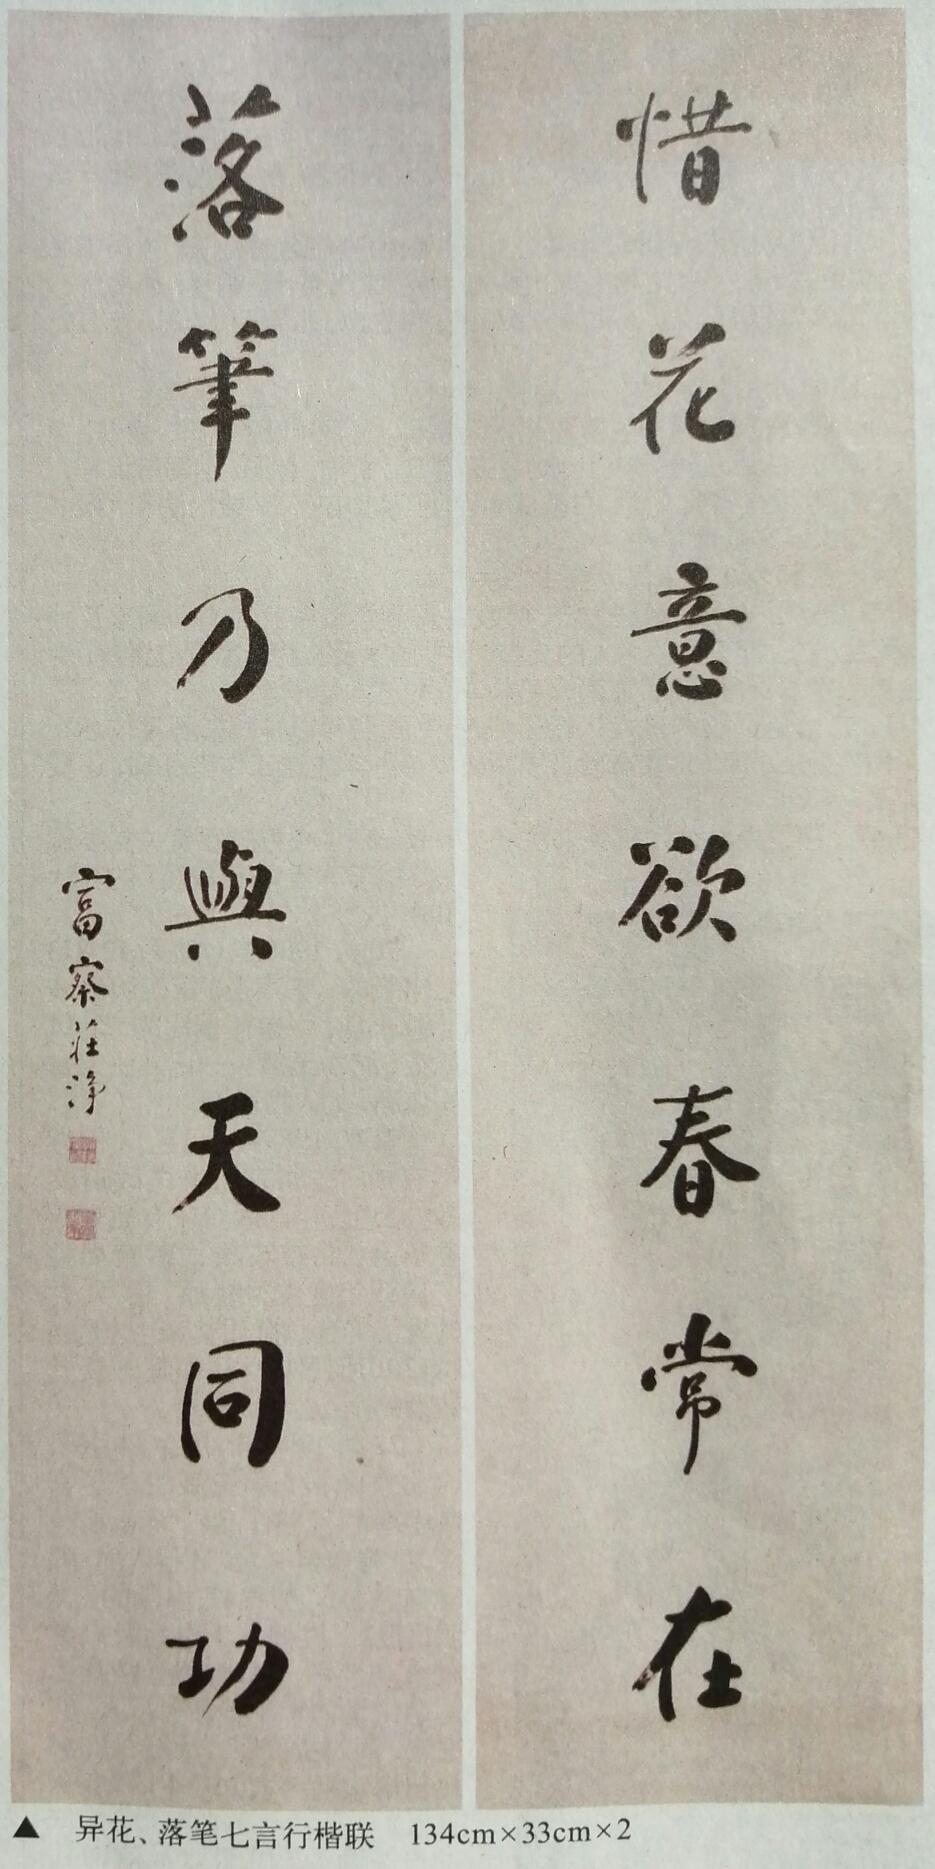 惜花意欲春常在
落筆乃與天同功
富察莊淨
▲ 异花、落笔七言行楷联 134cm×33cm×2